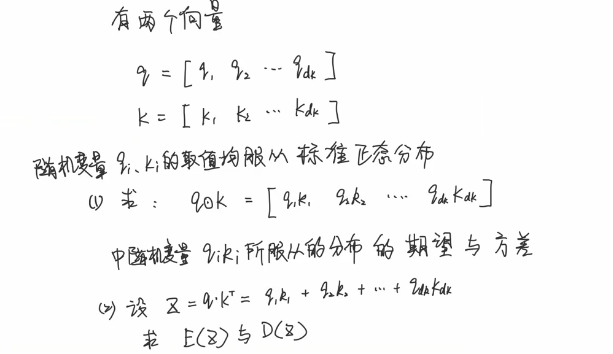 有两个向量
q = [ q₁ q₂ ⋯ q_dk ]
k = [ k₁ k₂ ⋯ k_dk ]
随机变量 qᵢ、kᵢ的取值均服从 标准正态分布
(1) 求： q⊙k = [ q₁k₁ q₂k₂ ⋯ q_dk k_dk ]
中随机变量 qᵢkᵢ所服从的分布 的 期望 与 方差
(2) 设 Z = q·kᵀ = q₁k₁ + q₂k₂ + ⋯ + q_dk k_dk
求 E(Z) 与 D(Z)